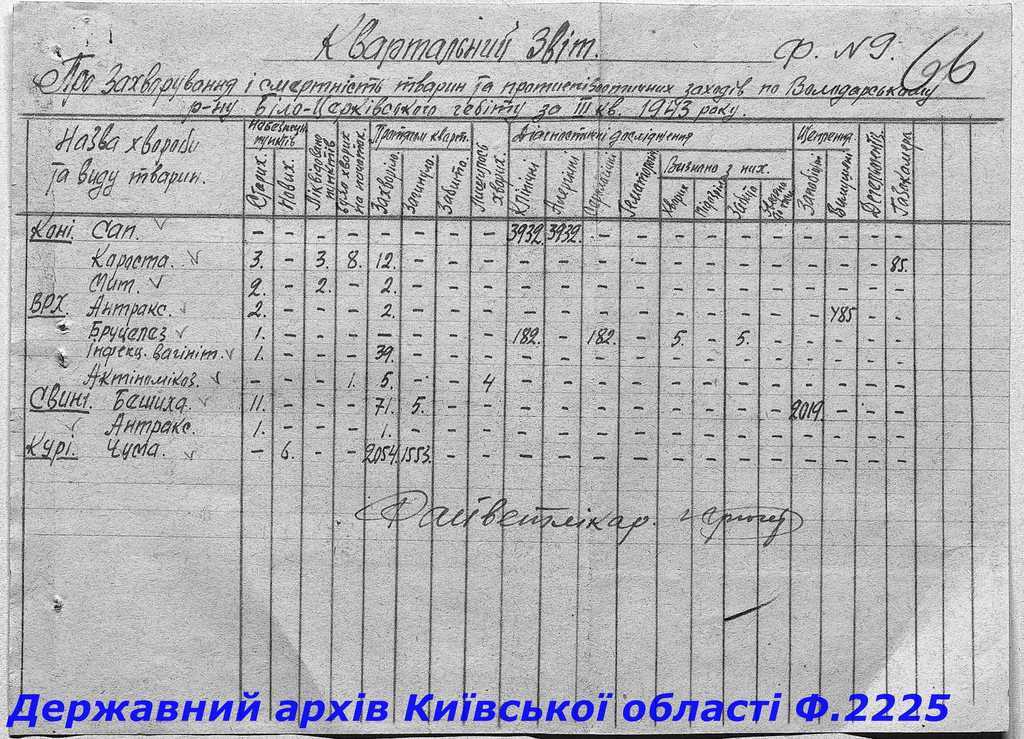 Квартальний Звіт. Ф. №9. 66
Про Захворування і смертність тварин та протиепізоотичних заходів по Володарському
р-ну Біло-Церківського гебіту за III кв. 1943 року.
Назва хвороби та виду тварин.
пунктів Протягом кварт. Діагностичні дослідження Щеплення
Визнано з них.
Старих. Нових. Ліквідовано пунктів було хворих на початок. Захворіло. Загинуло. Забито. Лишилось хворих. Клінічні Алергічні Хворих Забито Вимушені Газокамера
Коні. Сап. - - - - - - - - 3932. 3932. - - - - - - - - - -
Короста. 3. - 3. 8. 12. - - - - - - - - - - - - - - 85.
Мит. 2. - 2. - 2. - - - - - - - - - - - - - - -
ВРХ. Антракс. 2. - - - 2. - - - - - - - - - - - - 485 - -
Бруцелез 1. - - - - - - - 182. - 182. - 5. - 5. - - - - -
Інфекц. вагініт. 1. - - - 39. - - - - - - - - - - - - - - -
Актіномікоз. - - - 1. 5. - - 4 - - - - - - - - - - - -
Свині. Бешиха. 11. - - - 71. 5. - - - - - - - - - - 2019. - - -
Антракс. 1. - - - 1. - - - - - - - - - - - - - - -
Курі. Чума. - 6. - - 2054. 1553. - - - - - - - - - - - - - -
Райветлікар.
Державний архів Київської області Ф.2225